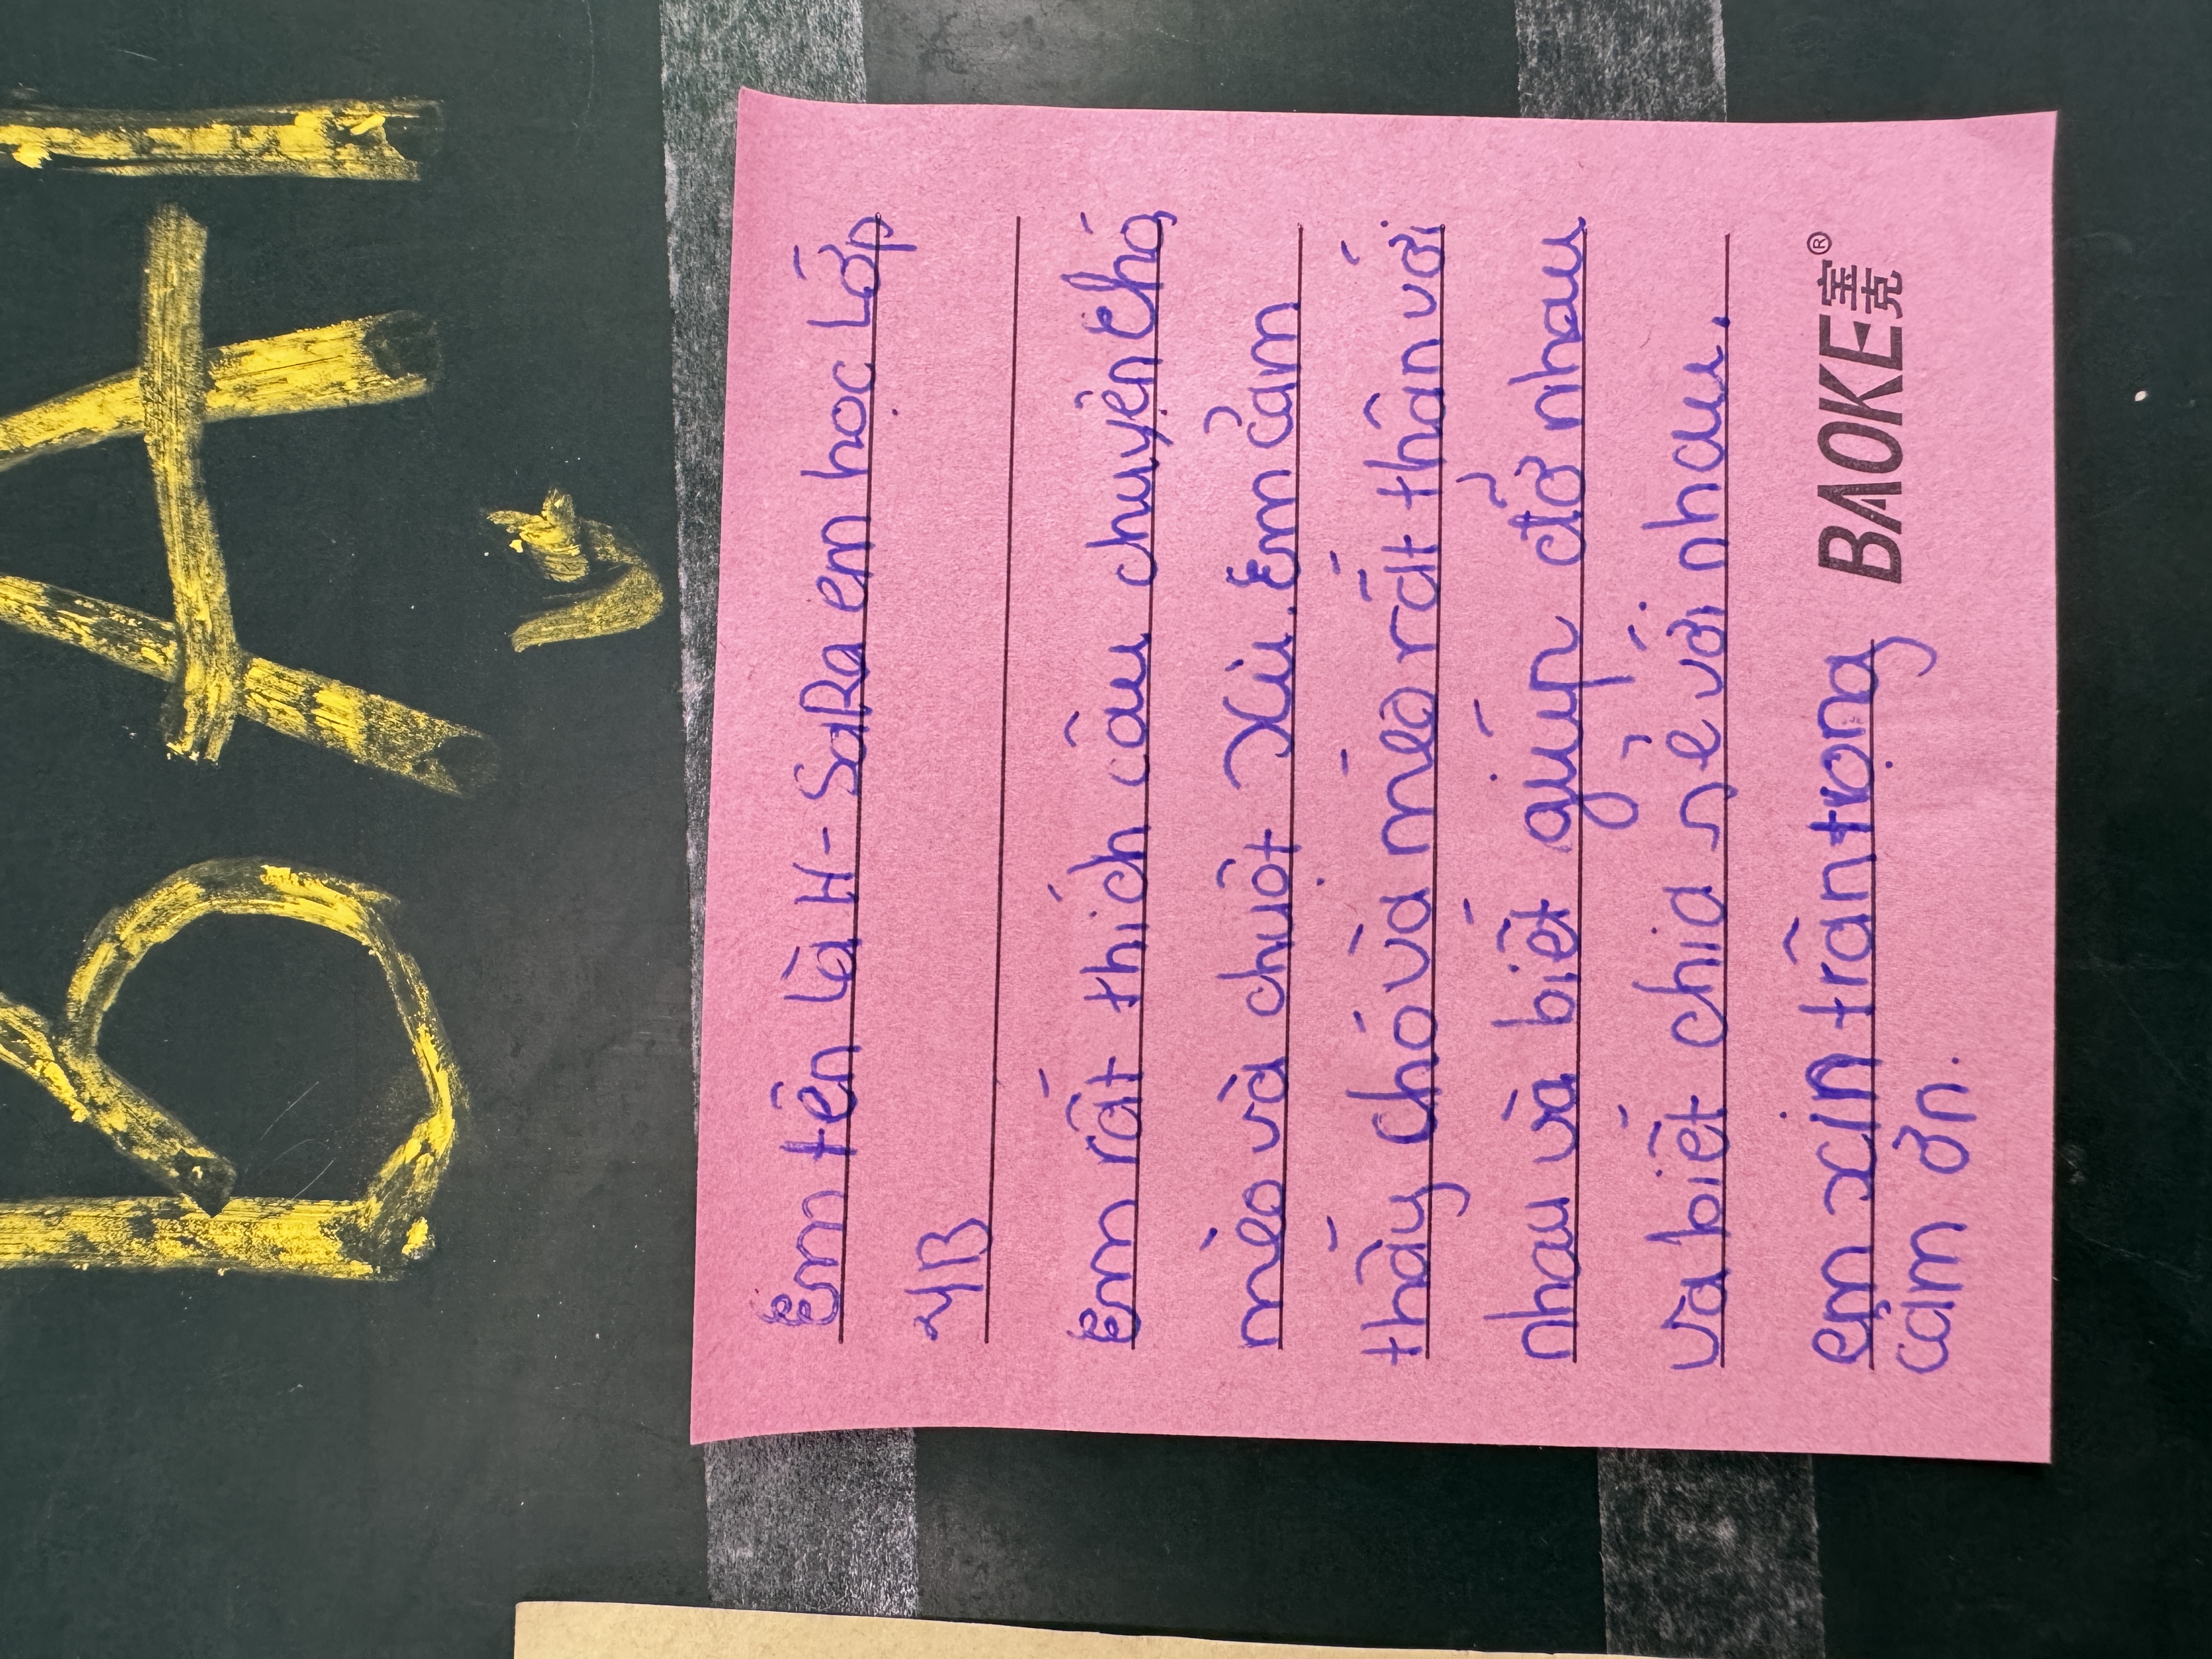 Em tên là H-SaRa em học Lớp
4B
Em rất thích câu chuyện chó,
mèo và chuột Xù. Em cảm
thấy chó và mèo rất thân với
nhau và biết giúp đỡ nhau
và biết chia sẻ với nhau.
em xin trân trọng
cảm ơn.
BAOKE宝克®